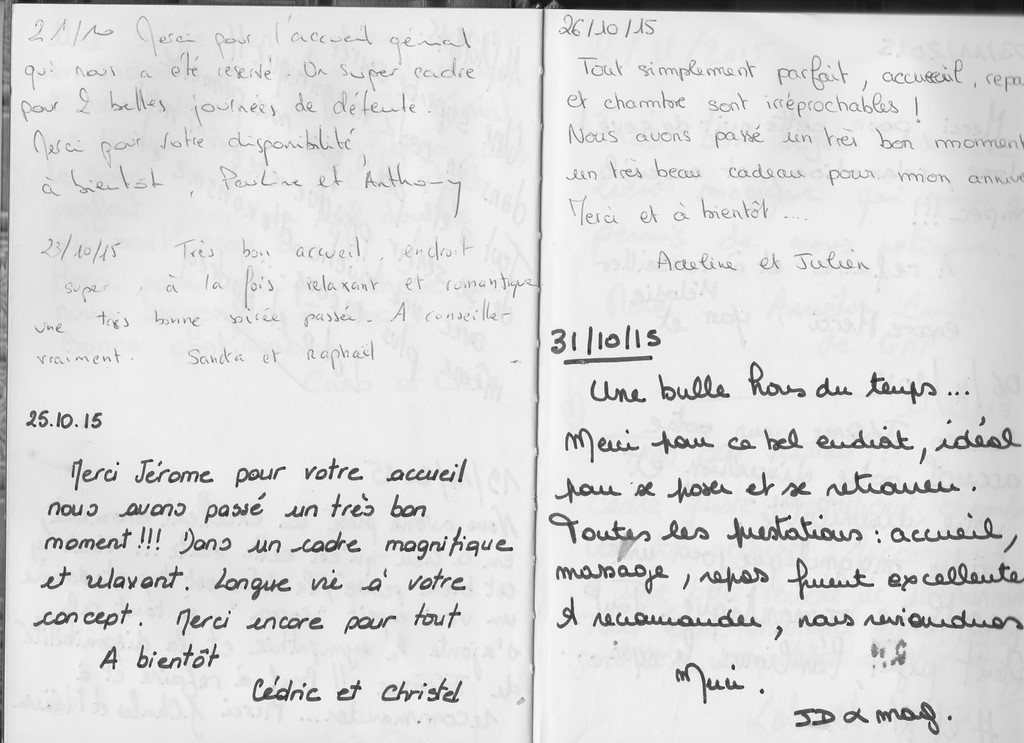 21/10 Merci pour l'accueil génial
qui nous a été reservé. Un super cadre
pour 2 belles journées de détente.
Merci pour votre disponibilité,
à bientôt, Pauline et Anthony
23/10/15 Très bon accueil, endroit
super, à la fois relaxant et romantique
une très bonne soirée passée. A conseiller
vraiment. Sandra et Raphaël
25.10.15
Merci Jérome pour votre accueil
nous avons passé un très bon
moment!!! Dans un cadre magnifique
et relaxant. Longue vie à votre
concept Merci encore pour tout
A bientôt
Cédric et Christel
26/10/15
Tout simplement parfait, accueil, repa
et chambre sont irréprochables !
Nous avons passé un très bon moment
un très beau cadeau pour mon annive
Merci et à bientôt ....
Adeline et Julien
31/10/15
Une bulle hors du temps...
Merci pour ce bel endroit, idéal
pour se poser et se retrouver.
Toutes les prestations : accueil,
massage, repas furent excellente
A recommander, nous reviendrons
!!!
Merci.
JD & mag.